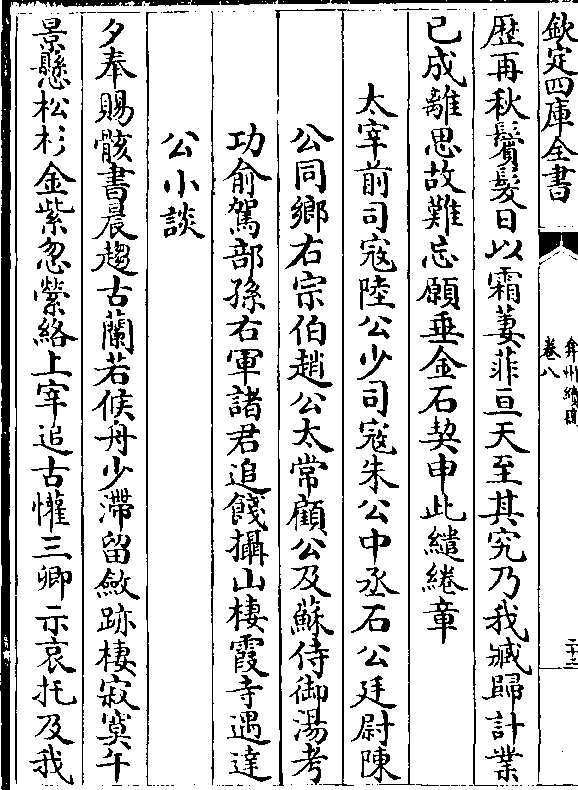 欽定四庫全書
弇州續稿
卷八
二十三
歴再秋鬢髮日以霜萋菲亘天至其究乃我臧歸計業
已成離思故難忘願垂金石契申此繾綣章
太宰前司寇陸公少司寇朱公中丞石公廷尉陳
公同鄉右宗伯趙公太常顧公及蘇侍御湯考
功俞駕部孫右軍諸君追餞攝山棲霞寺遇達
公小談
夕奉賜骸書晨趨古蘭若候舟少滯留斂跡棲寂寞午
景懸松杉金紫忽縈絡上宰追古懽三卿示哀托及我